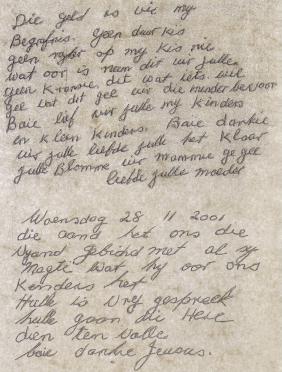 Die geld is vir my
Begrafnis. Geen duur kis
geen ryker op my kis nie
wat oor is neem dit vir julle
geen Kranse dit wat iets wil
gee wat dit gee vir die minder bevoor
Baie lief vir julle my kinders
en Klein Kinders. Baie dankie
vir julle liefde julle het Klaar
julle Blomme vir mammie ge gee
liefde julle moeder
Woensdag 28 11 2001
die aand het ons die
vyand gebind met al sy
Magte wat hy oor ons
Kinders het
Hulle is vry gespreek
hulle gaan die Here
dien ten volle
baie dankie Jeusus.